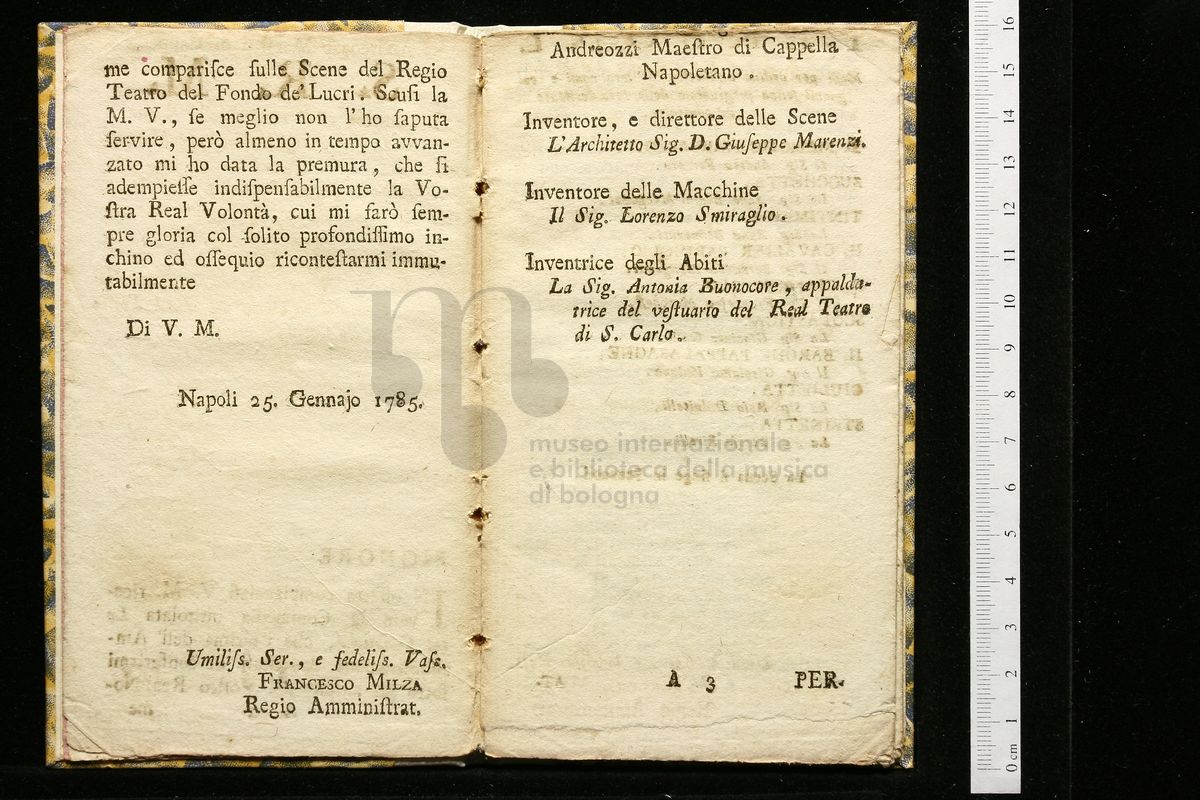 me compariſce ſulle Scene del Regio
Teatro del Fondo de' Lucri. Scuſi la
M. V., ſe meglio non l' ho ſaputa
ſervire, però almeno in tempo avvan-
zato mi ho data la premura, che ſi
adempieſſe indiſpenſabilmente la Vo-
ſtra Real Volontà, cui mi farò ſem-
pre gloria col ſolito profondiſſimo in-
chino ed oſſequio riconteſtarmi immu-
tabilmente
Di V. M.
Napoli 25. Gennajo 1785.
Umiliſs. Ser., e fedeliſs. Vaſs.
FRANCESCO MILZA
Regio Amminiſtrat.
Andreozzi Maeſtro di Cappella
Napoletano.
Inventore, e direttore delle Scene
L'Architetto Sig. D. Giuſeppe Marenzi.
Inventore delle Macchine
Il Sig. Lorenzo Smiraglio.
Inventrice degli Abiti
La Sig. Antonia Buonocore, appalda-
trice del veſtuario del Real Teatro
di S. Carlo.
A 3 PER-
museo internazionale
e biblioteca della musica
di bologna
0 cm 1 2 3 4 5 6 7 8 9 10 11 12 13 14 15 16